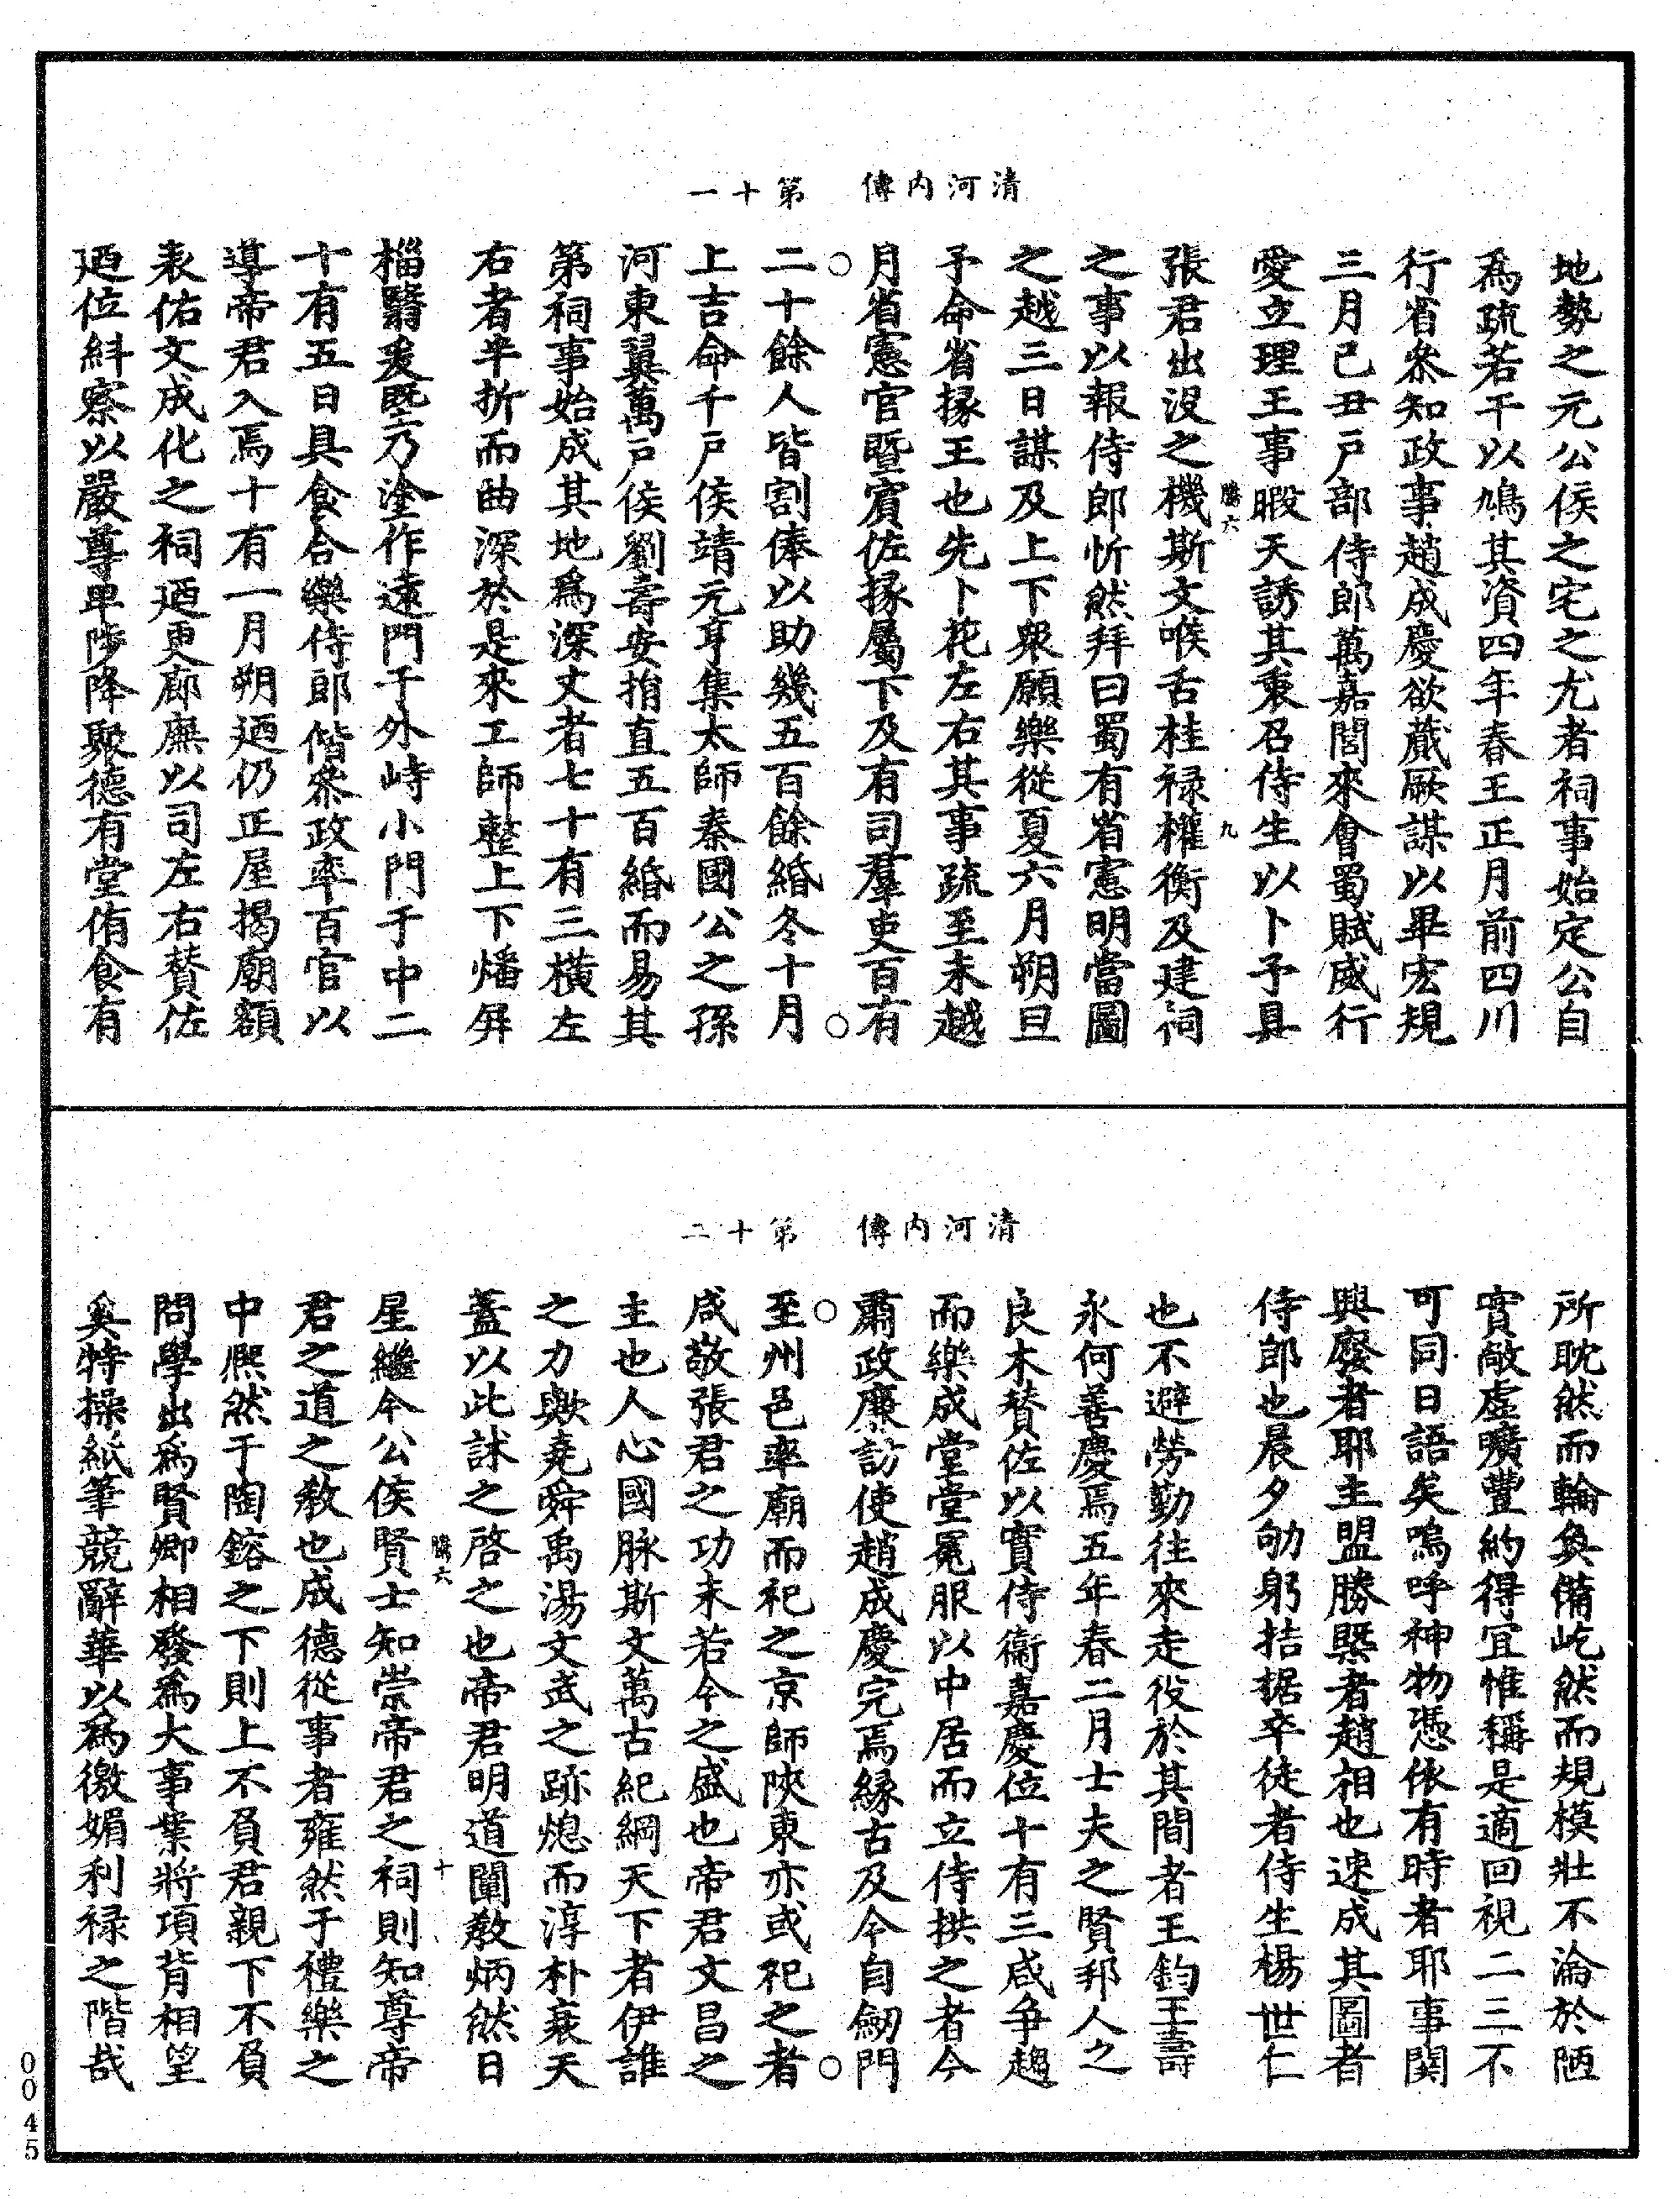 清河內傳　第十一
地勢之元公侯之宅之尤者祠事始定公自
爲疏若干以鳩其資四年春王正月前四川
行省叅知政事趙成慶欲蕆厥謀以畢宏規
三月己丑戶部侍郎萬嘉閭來會蜀賦威行
愛立理王事暇天誘其衷召侍生以卜予具
騰六　九
張君出没之機斯文喉舌桂禄權衡及建祠
之事以報侍郎忻然拜曰蜀有省憲明當圖
之越三日謀及上下衆願樂從夏六月朔旦
予命省掾王也先卜花左右其事疏至未越
月省憲官暨賔佐掾屬下及有司羣吏百有
二十餘人皆割俸以助幾五百餘緡冬十月
上吉命千戶侯靖元亨集太師秦國公之孫
河東翼萬戶侯劉壽安捐直五百緡而易其
第祠事始成其地爲深丈者七十有三橫左
右者半折而曲深於是來工師整上下燔屏
榴翳爰塈乃塗作遠門于外峙小門于中二
十有五日具食合樂侍郎偕叅政率百官以
導帝君入焉十有一月朔廼仍正屋揭廟額
表佑文成化之祠廼更廊廡以司左右賛佐
廼位糾察以嚴尊卑陟降聚德有堂侑食有
清河內傳　第十二
所耽然而輪奐備屹然而規模壯不淪於陋
實敞虛曠豐約得宜惟稱是適回視二三不
可同日語矣嗚呼神物憑依有時者耶事関
興廢者耶主盟勝槩者趙相也速成其圖者
侍郎也晨夕劬躬拮据卒徒者侍生楊世仁
也不避勞勤往來走役於其間者王鈞王壽
永何善慶焉五年春二月士夫之賢邦人之
良木賛佐以實侍衞嘉慶位十有三咸争趨
而樂成堂堂冕服以中居而立侍拱之者今
肅政廉訪使趙成慶完焉緣古及今自劒門
至州邑率廟而祀之京師陝東亦或祀之者
咸敬張君之功未若今之盛也帝君文昌之
主也人心國脉斯文萬古紀綱天下者伊誰
之力歟堯舜禹湯文武之跡熄而淳朴衰天
蓋以此詸之啓之也帝君明道闡教炳然日
騰六　十
星繼今公侯賢士知崇帝君之祠則知尊帝
君之道之教也成德從事者雍然于禮樂之
中熙然于陶鎔之下則上不負君親下不負
問學出爲賢卿相發爲大事業將項背相望
奚特操紙筆競辭華以爲徼媚利禄之階哉
0045